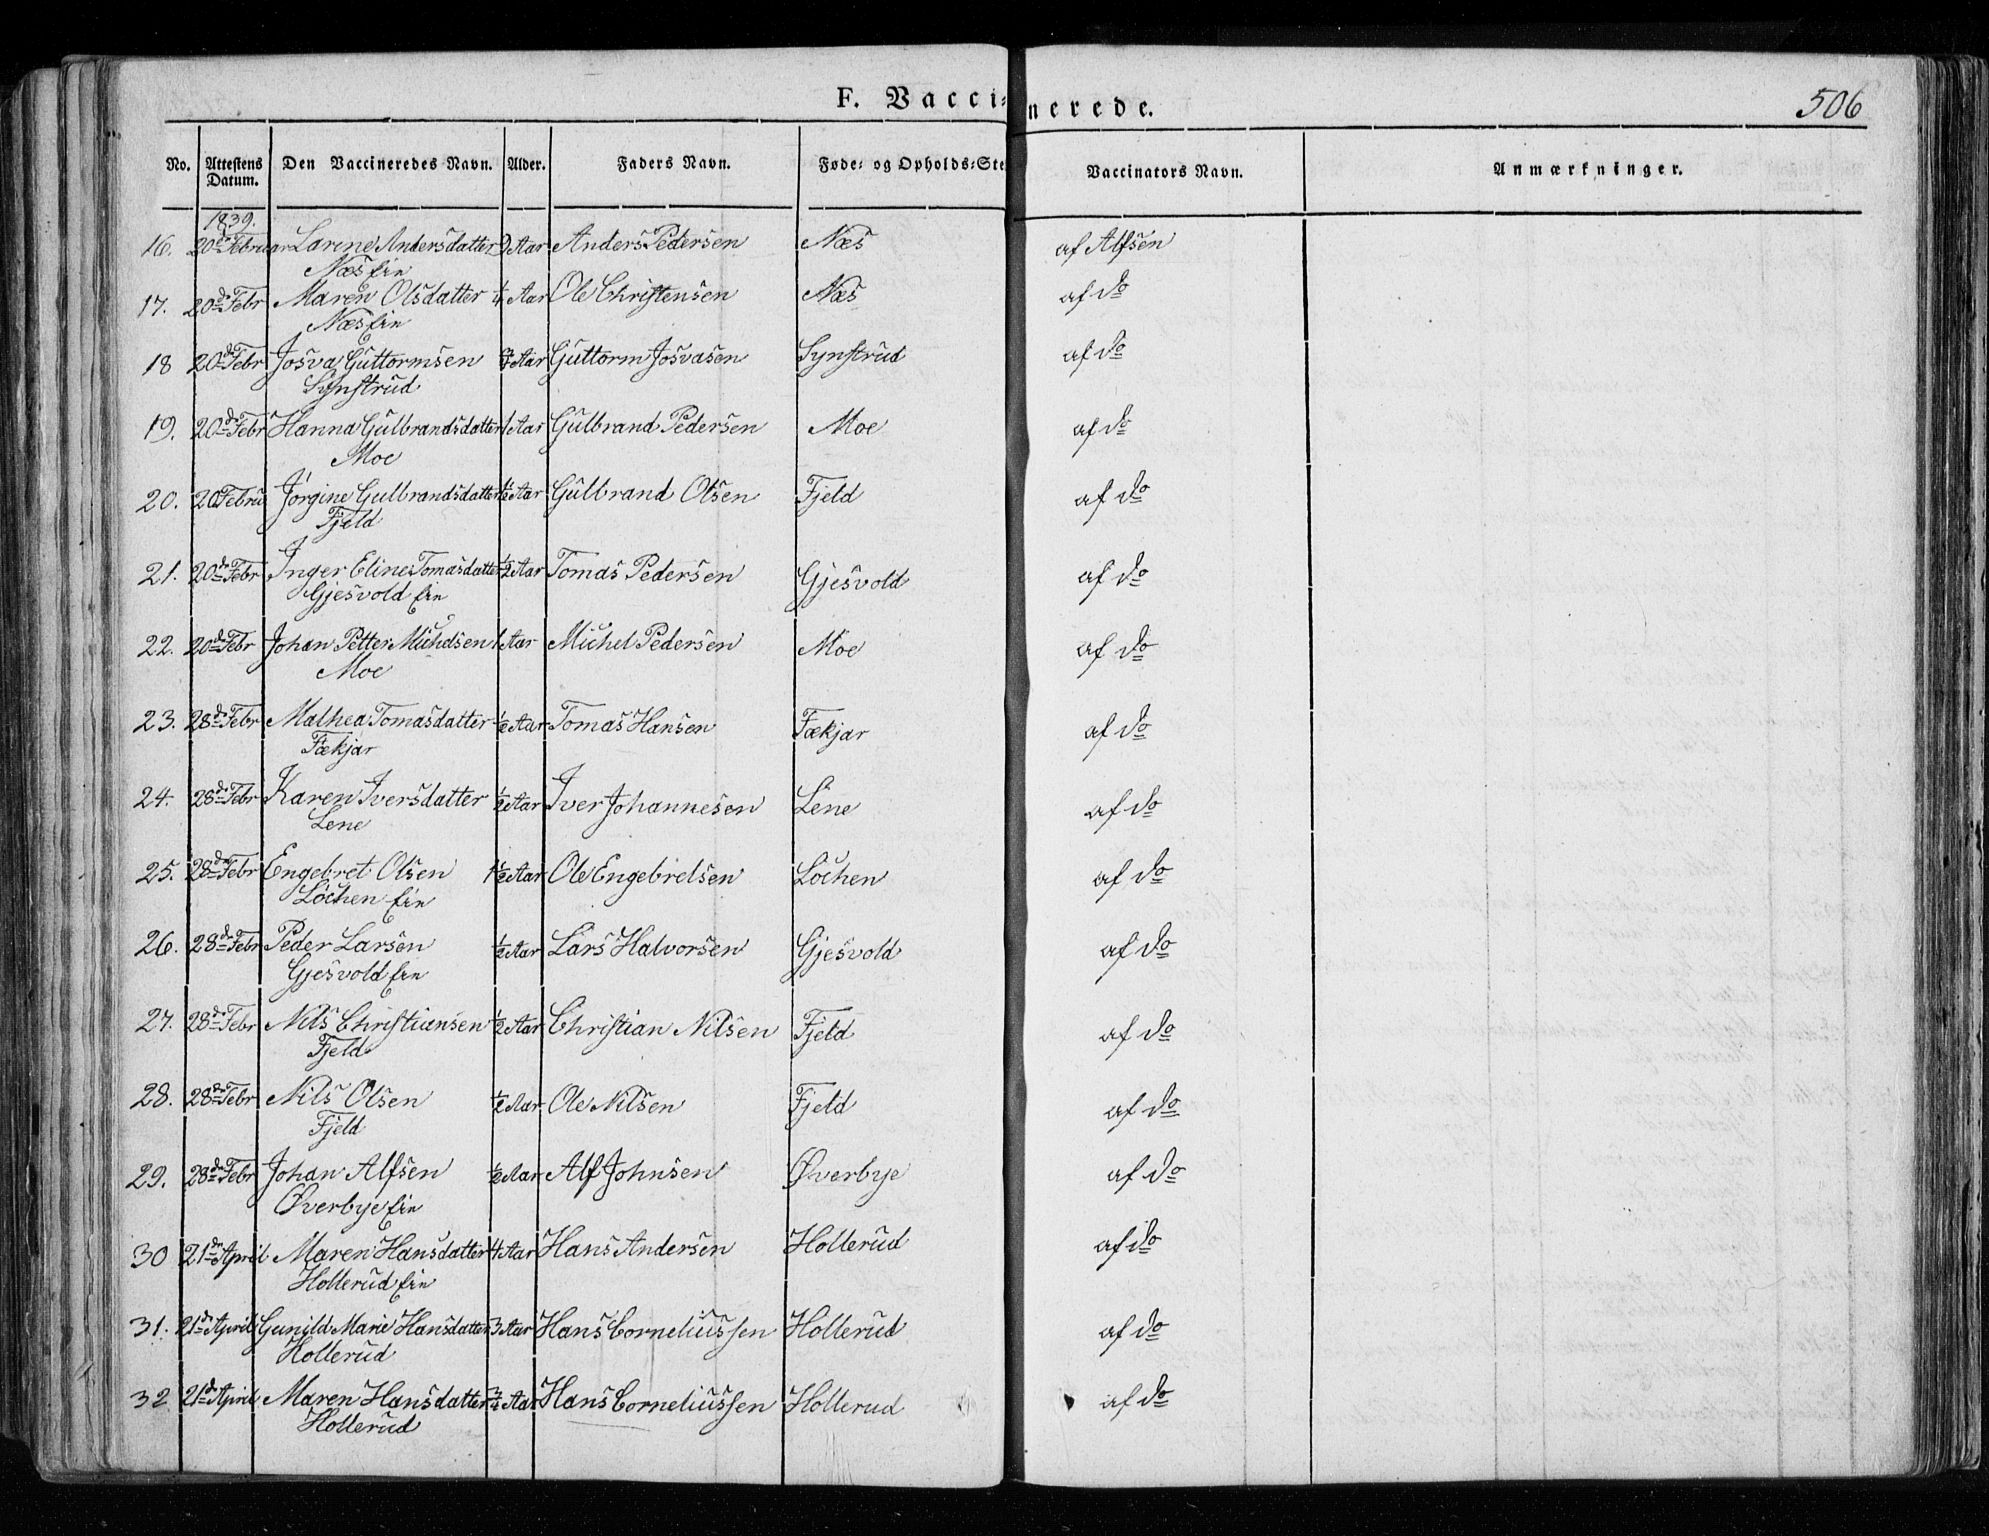 F. Vaccinerede.
506
No. Attestens Datum. Den Vaccineredes Navn. Alder. Faders Navn. Føde- og Opholds-Ste Vaccinators Navn. Anmærkninger.
1839.
16. 20de Februar Larine Andersdatter Aar Anders Pedersen Næs af Alfsen
Næs Eie
17. 20de Febr Maren Olsdatter Aar Ole Christensen Næs af do
Næs Eie
18 20de Febr Josva Guttormsen Aar Guttorm Josvasen Synstrud af do
Synstrud
19. 20de Febr Hanna Gulbrandsdatter 1 Aar Gulbrand Pedersen Moe af do
Moe
20. 20 Febru Jørgine Gulbrandsdatter ½ Aar Gulbrand Olsen Fjeld af do
Fjeld
21. 20de Febr Inger Eline Tomasdatter ½ Aar Tomas Pedersen Gjesvold af do
Gjesvold Eie
22. 20de Febr Johan Petter Michelsen 1 Aar Michel Pedersen Moe af do
Moe
23. 28de Febr Mathea Tomasdatter ½ Aar Tomas Hansen Fækjar af do
Fækjar
24. 28de Febr Karen Iversdatter ½ Aar Iver Johannesen Lene af do
Lene
25. 28de Febr Engebret Olsen 1½ Aar Ole Engebretsen Løchen af do
Løchen Eie
26. 28de Febr Peder Larsen ½ Aar Lars Halvorsen Gjesvold af do
Gjesvold Eie
27. 28de Febr Nils Christiansen ½ Aar Christian Nilsen Fjeld af do
Fjeld
28. 28de Febr Nils Olsen ½ Aar Ole Nilsen Fjeld af do
Fjeld
29. 28de Febr Johan Alfsen ½ Aar Alf Johnsen Øverbye af do
Øverbye Eie
30 21de April Maren Hansdatter 4 Aar Hans Andersen Hollerud af do
Hollerud Eie
31. 21de April Gunild Marie Hansdatter 3 Aar Hans Corneliussen Hollerud af do
Hollerud
32 21de April Maren Hansdatter Aar Hans Corneliussen Hollerud af do
Hollerud